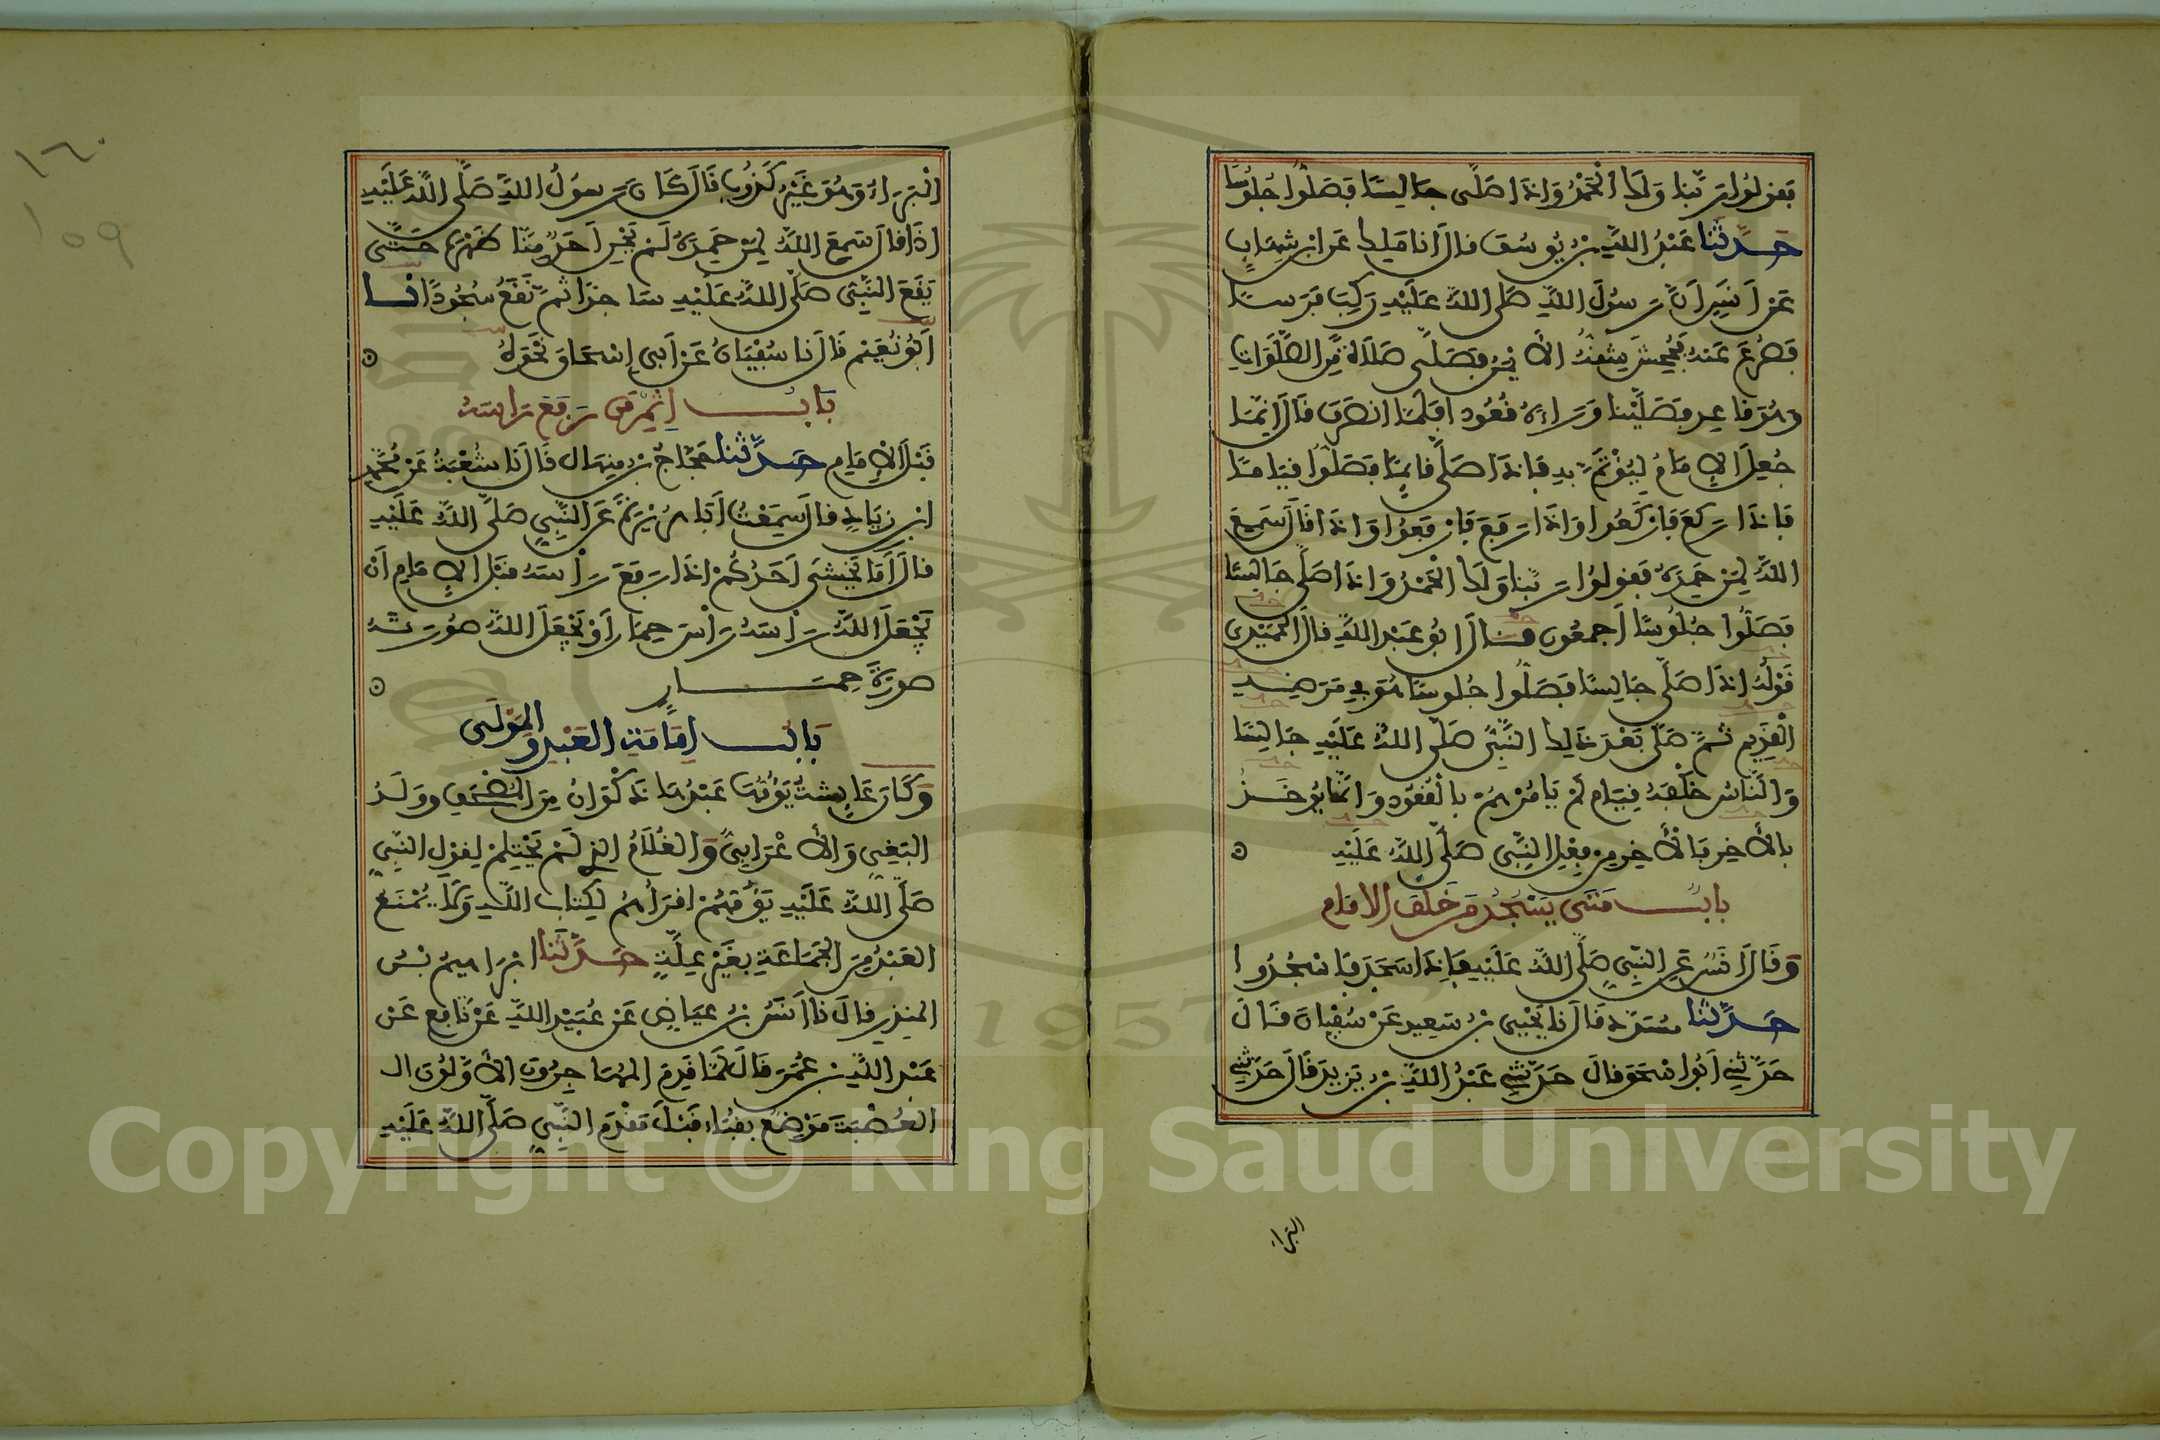 فقولوا ربنا ولك الحمد واذا صلى جالسا فصلوا جلوسا
حدثنا عبد الله بن يوسف قال انا ملك عن ابن شهاب
عن انس ان رسول الله صلى الله عليه ركب فرسا
فصرع عنه فجحش شقه الأيمن فصلى صلاة من الصلوات
وهو قاعد فصلينا وراءه قعودا فلما انصرف قال انما
جعل الإمام ليؤتم به فإذا صلى قائما فصلوا قياما
فإذا ركع فاركعوا وإذا رفع فارفعوا واذا قال سمع
الله لمن حمده فقولوا ربنا ولك الحمد واذا صلى جالسا
فصلوا جلوسا أجمعون قال ابو عبد الله قال الحميدي
قوله إذا صلى جالسا فصلوا جلوسا هو في مرضه
القديم ثم صلى بعد ذلك النبي صلى الله عليه جالسا
والناس خلفه قيام لم يامرهم بالقعود وإنما يؤخذ
بالأخر فالأخر من فعل النبي صلى الله عليه
باب متى يسجد من خلف الامام
وقال انس عن النبي صلى الله عليه فإذا سجد فاسجدوا
حدثنا مسدد قال نا يحيى بن سعيد عن سفيان قال
حدثني ابو اسحق قال حدثني عبد الله بن يزيد قال حدثني
البراء
١٦٠
١٥٩
البراء وهو غير كذوب قال كان رسول الله صلى الله عليه
اذا قال سمع الله لمن حمده لم يحن احد منا ظهره حتى
يقع النبي صلى الله عليه ساجدا ثم نقع سجودا نا
ابو نعيم قال نا سفيان عن ابي إسحاق نحوه
باب إثم من رفع راسه
قبل الإمام حدثنا حجاج بن منهال قال نا شعبة عن محمد
ابن زياد قال سمعت ابا هريرة عن النبي صلى الله عليه
قال أما يخشى احدكم اذا رفع رأسه قبل الإمام أن
يجعل الله رأسه رأس حمار او يجعل الله صورته
صورة حمار
باب إمامة العبد والمولى
وكانت عايشة يؤمها عبدها ذكوان من المصحف وولد
البغي والأعرابي والغلام الذي لم يحتلم لقول النبي
صلى الله عليه يؤمهم اقرأهم لكتاب الله ولا يمنع
العبد من الجماعة بغير علة حدثنا ابراهيم بن
المنذر قال نا أنس بن عياض عن عبيد الله عن نافع عن
عبد الله بن عمر قال لما قدم المهاجرون الأولون ال
العصبة موضع بقباء قبل مقدم النبي صلى الله عليه
1957
Copyright © King Saud University